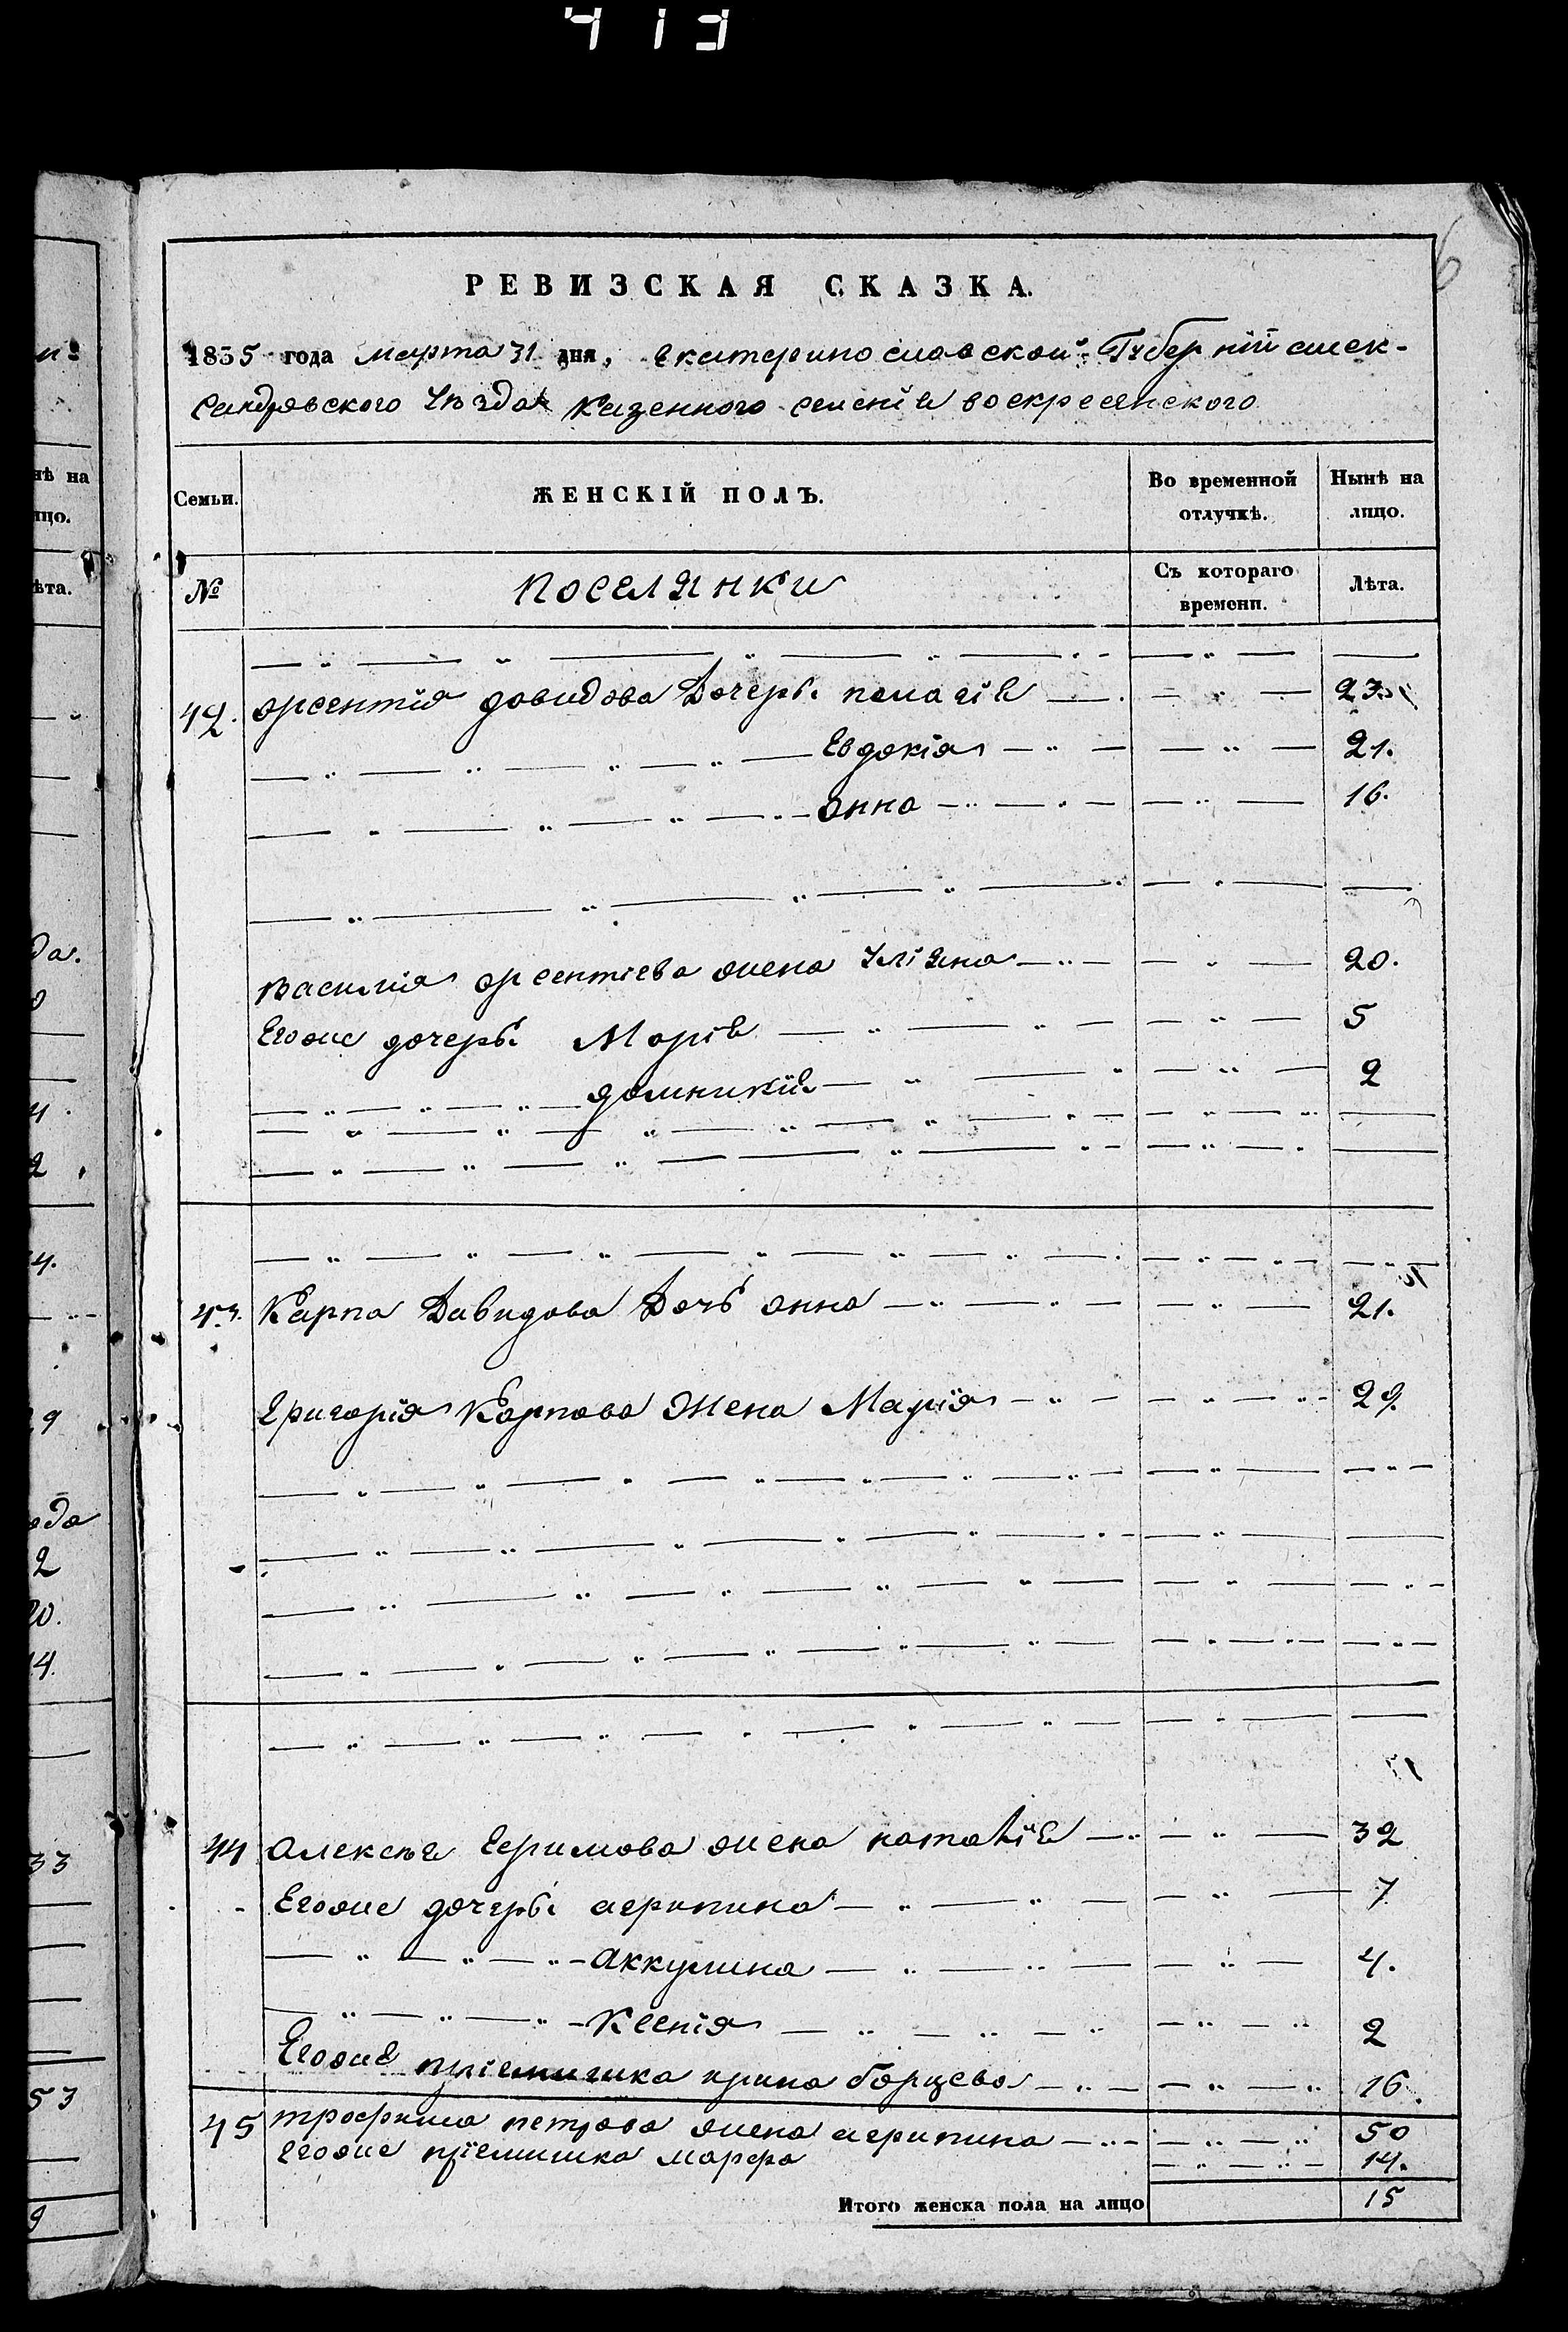 413
6
РЕВИЗСКАЯ СКАЗКА.
1835 года марта 31 дня, Екатеринославской Губернїи алек-
сандровского Уѣзда Казенного селенїя воскресенского
Семьи. ЖЕНСКІЙ ПОЛЪ. Во временной отлучкѣ. Нынѣ на лицо.
№ поселянки Съ котораго времени. Лѣта.
42. арсентїя довидова Дочерѣ. пелагїя 23
Евдокїя 21.
анна 16.
василїя арсентїева жена Улїяна 20.
Егоже дочерѣ Марїя 5
домникїя 2
43. Карпа Давидова Дочь анна 21.
григорїя Карпова Жена Марїя 29.
44 алексѣя Ефимова жена наталїя 32
Егоже дочерѣ агрипина 7
Аккулина 4.
Ксенїя 2
Егоже прїемишка ирина борцева 16.
45 трофима петрова жена агрипина 50
Егоже прїемишка марфа 14.
Итого женска пола на лицо 15